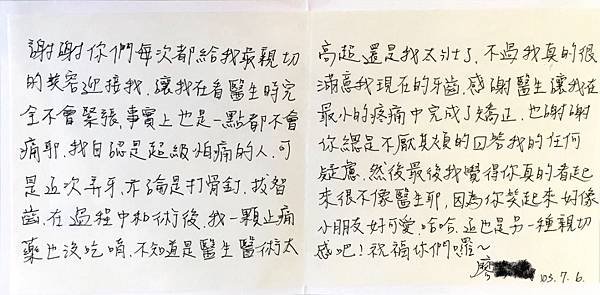 謝謝你們每次都給我最親切
的笑容迎接我，讓我在看醫生時完
全不會緊張，事實上也是一點都不會
痛耶，我自認是超級怕痛的人，可
是這次弄牙，不論是打骨釘，拔智
齒，在過程中和術後，我一顆止痛
藥也沒吃唷，不知道是醫生醫術太
高超還是我太壯了，不過我真的很
滿意我現在的牙齒，感謝醫生讓我在
最小的疼痛中完成了矯正，也謝謝
你總是不厭其煩的回答我的任何
疑慮，然後最後我覺得你真的看起
來很不像醫生耶，因為你笑起來好像
小朋友好可愛哈哈，這也是另一種親切
感吧！祝福你們囉～
廖
103.7.6.